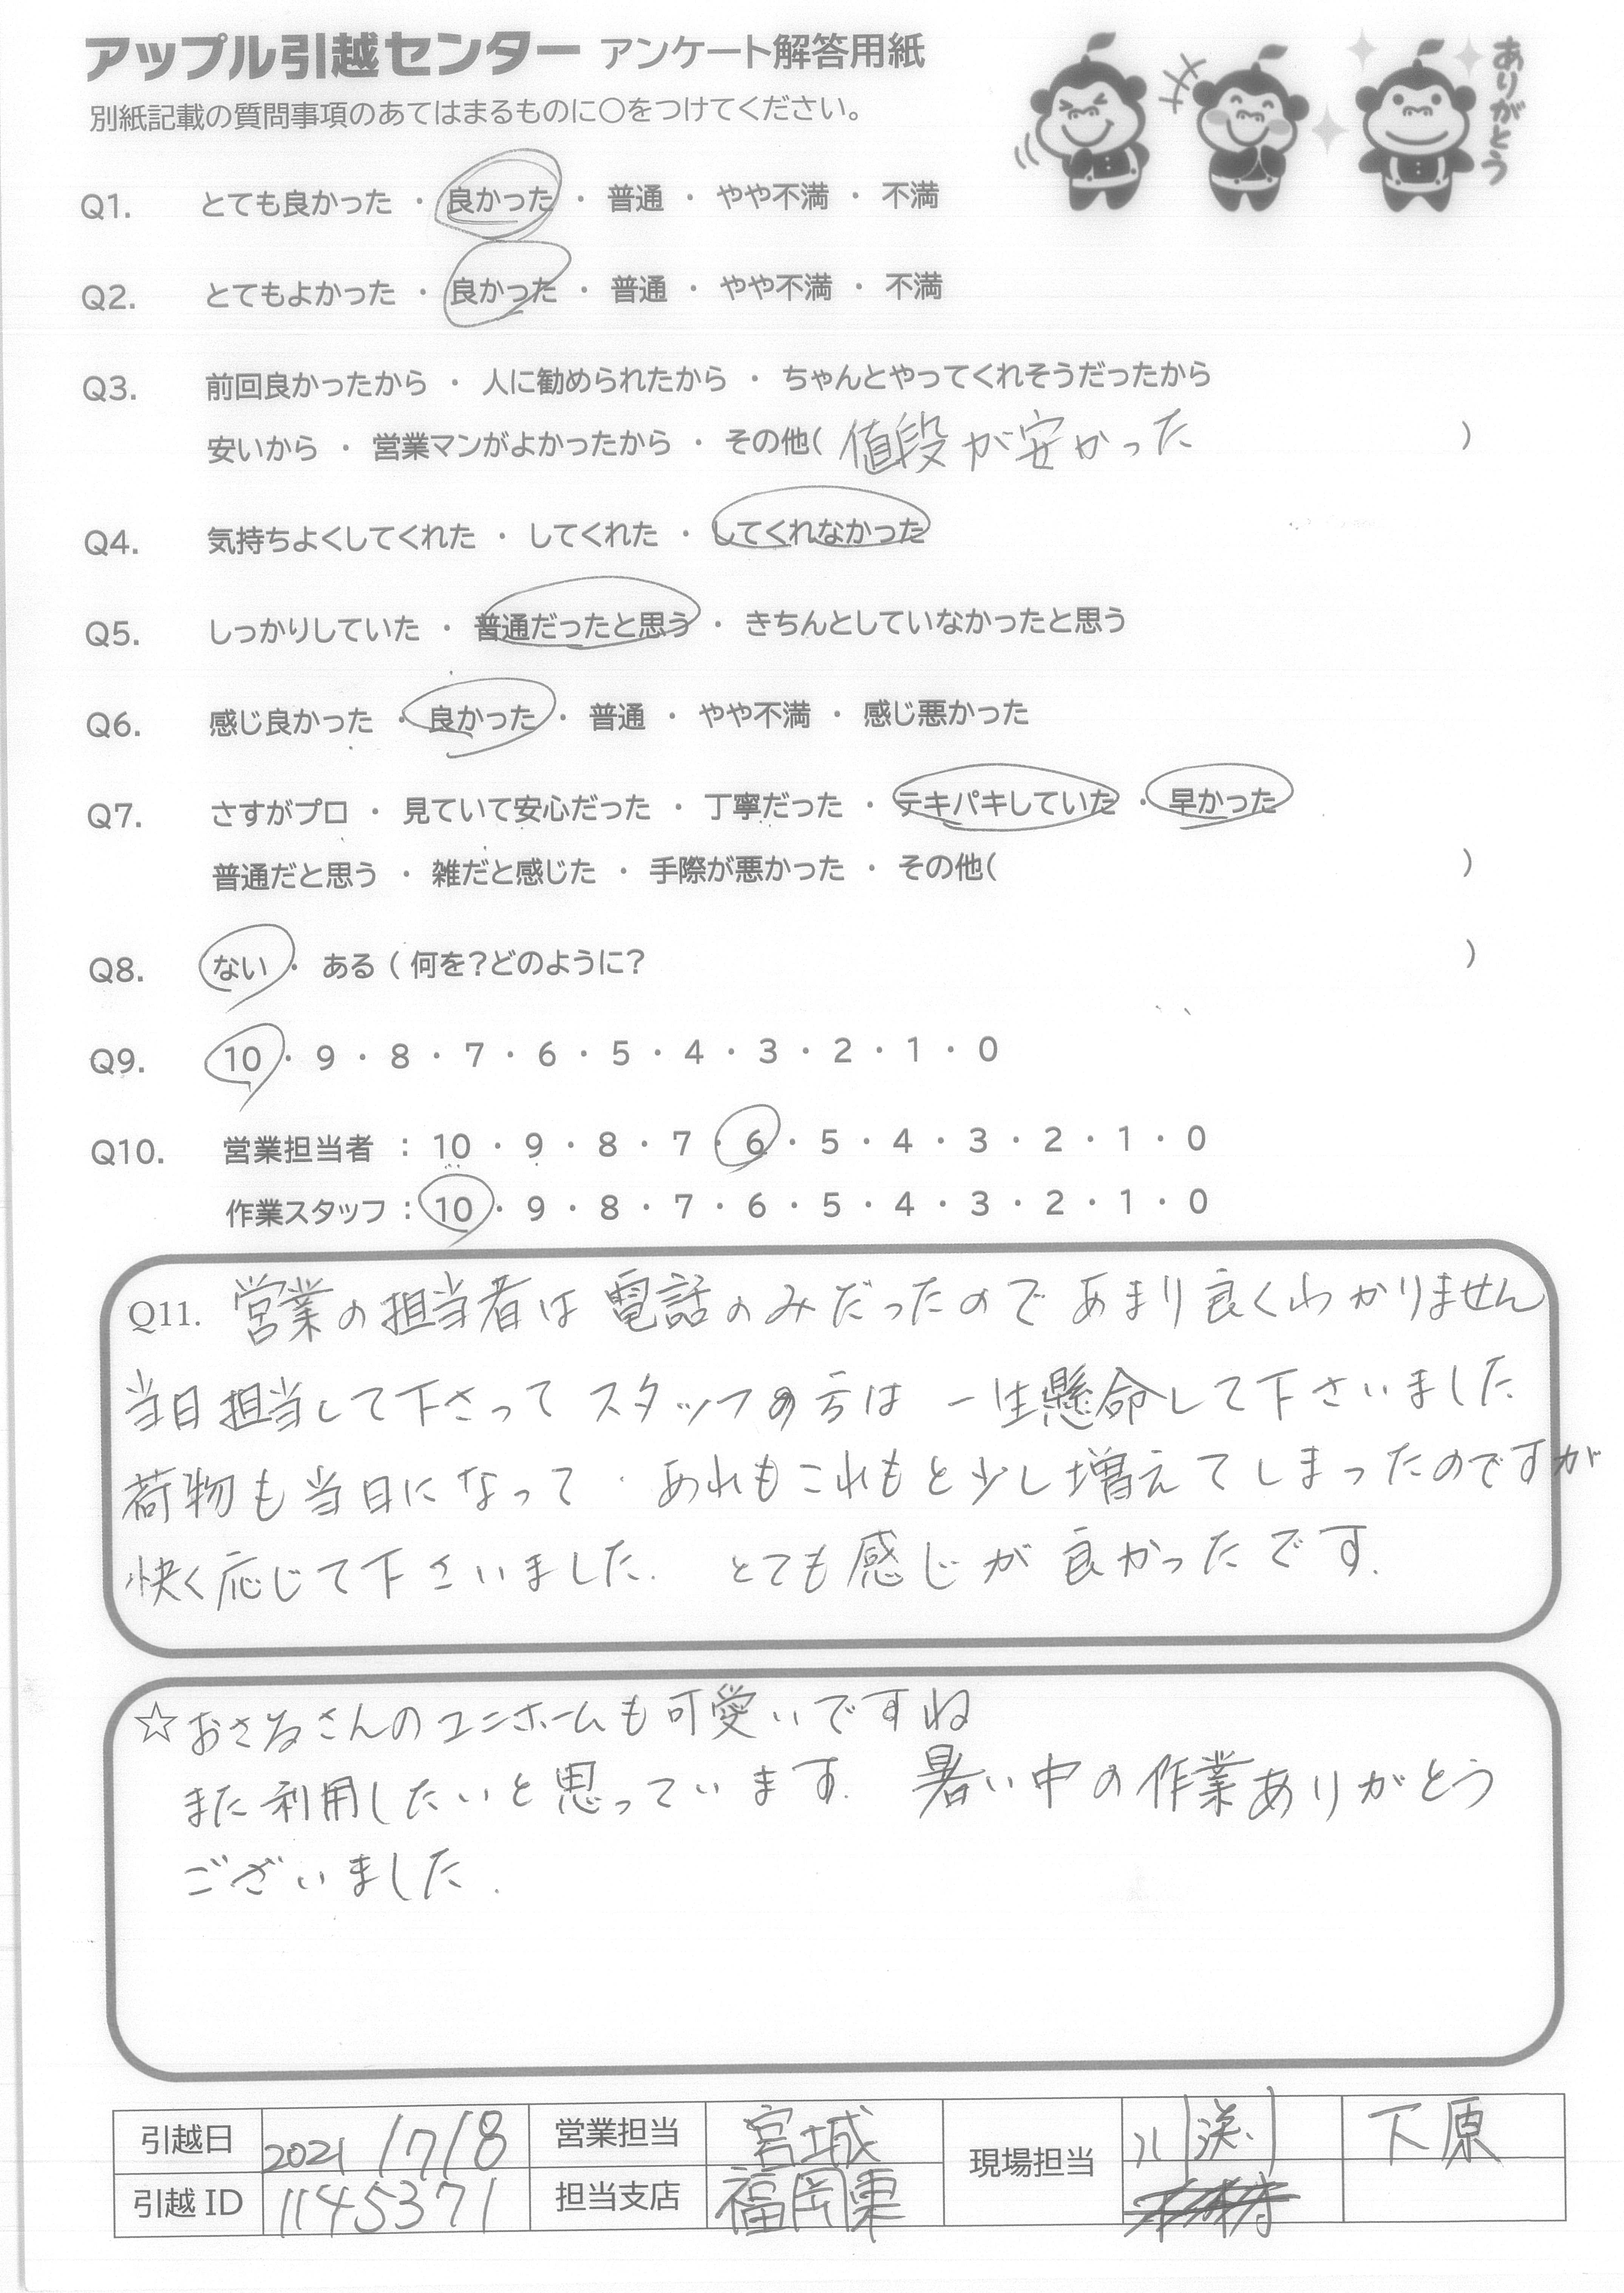 アップル引越センター アンケート解答用紙
ありがとう
別紙記載の質問事項のあてはまるものに○をつけてください。
Q1. とても良かった ・ 良かった ・ 普通 ・ やや不満 ・ 不満
Q2. とてもよかった ・ 良かった ・ 普通 ・ やや不満 ・ 不満
Q3. 前回良かったから ・ 人に勧められたから ・ ちゃんとやってくれそうだったから
安いから ・ 営業マンがよかったから ・ その他( 値段が安かった )
Q4. 気持ちよくしてくれた ・ してくれた ・ してくれなかった
Q5. しっかりしていた ・ 普通だったと思う ・ きちんとしていなかったと思う
Q6. 感じ良かった ・ 良かった ・ 普通 ・ やや不満 ・ 感じ悪かった
Q7. さすがプロ ・ 見ていて安心だった ・ 丁寧だった ・ テキパキしていた ・ 早かった
普通だと思う ・ 雑だと感じた ・ 手際が悪かった ・ その他( )
Q8. ない ・ ある ( 何を?どのように? )
Q9. 10 ・ 9 ・ 8 ・ 7 ・ 6 ・ 5 ・ 4 ・ 3 ・ 2 ・ 1 ・ 0
Q10. 営業担当者 : 10 ・ 9 ・ 8 ・ 7 ・ 6 ・ 5 ・ 4 ・ 3 ・ 2 ・ 1 ・ 0
作業スタッフ : 10 ・ 9 ・ 8 ・ 7 ・ 6 ・ 5 ・ 4 ・ 3 ・ 2 ・ 1 ・ 0
Q11. 営業の担当者は電話のみだったのであまり良くわかりません
当日担当して下さって スタッフの方は 一生懸命して下さいました
荷物も当日になって、あれもこれもと少し増えてしまったのですが
快く応じて下さいました. とても感じが良かったです.
☆おさるさんのユニホームも可愛いですね
また利用したいと思っています. 暑い中の作業ありがとう
ございました.
引越日 2021/7/8 営業担当 宮城 現場担当 川渕 下原
引越ID 1145371 担当支店 福岡東